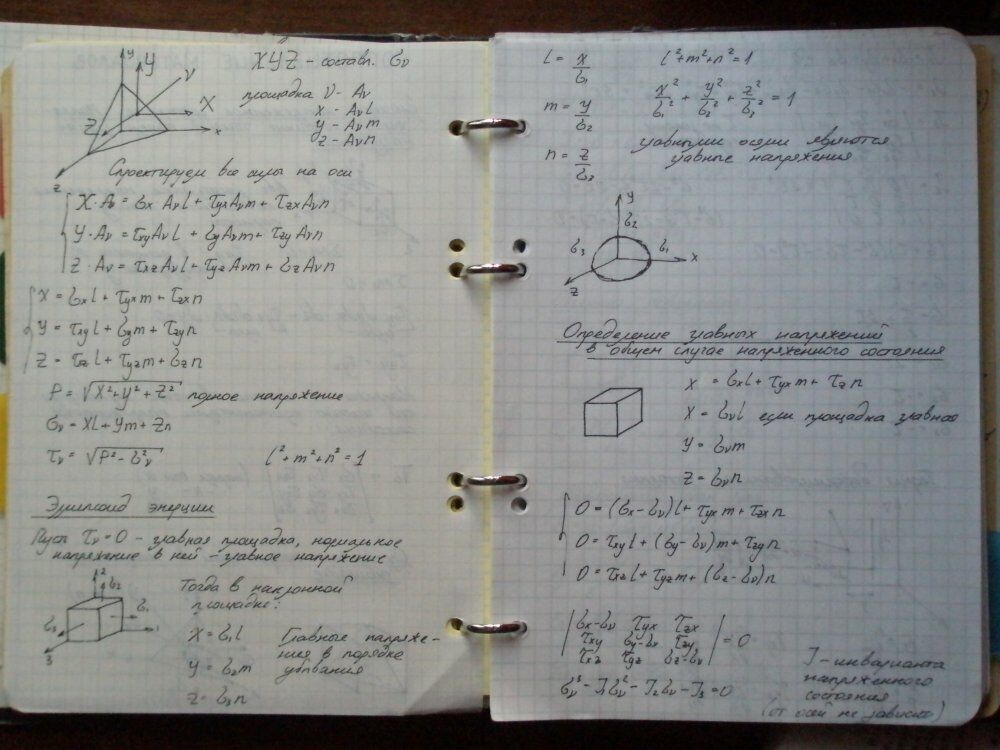 y
Y
ν
X
Z
x
z
XYZ - составл. σν
площадка ν - Aν
x - Aν l
y - Aν m
z - Aν n
Спроектируем все силы на оси
X·Aν = σx Aν l + τyx Aν m + τzx Aν n
Y·Aν = τxy Aν l + σy Aν m + τzy Aν n
Z·Aν = τxz Aν l + τyz Aν m + σz Aν n
X = σx l + τyx m + τzx n
Y = τxy l + σy m + τzy n
Z = τxz l + τyz m + σz n
P = √X²+Y²+Z² полное напряжение
σν = Xl + Ym + Zn
τν = √P² - σ²ν l²+m²+n²=1
Эллипсоид энергии
Пусть τν = 0 - главная площадка, нормальное
напряжение в ней - главное напряжение
2
σ2
σ1
1
σ3
3
Тогда в наклонной
площадке:
X = σ1 l
Y = σ2 m
Z = σ3 n
Главные напряже-
ния в порядке
убывания
l = x/σ1 l²+m²+n²=1
m = y/σ2 x²/σ1² + y²/σ2² + z²/σ3² = 1
n = z/σ3
главными осями являются
главные напряжения
y
σ2
σ3
σ1
x
z
Определение главных напряжений
в общем случае напряженного состояния
X = σx l + τyx m + τz n
X = σν l если площадка главная
Y = σν m
Z = σν n
0 = (σx - σν) l + τyx m + τzx n
0 = τxy l + (σy - σν) m + τzy n
0 = τxz l + τyz m + (σz - σν) n
| σx-σν τyx τzx |
| τxy σy-σν τzy | = 0
| τxz τyz σz-σν |
σν³ - J1σν² - J2σν - J3 = 0
J - инварианта
напряженного
состояния
(от осей не зависит)